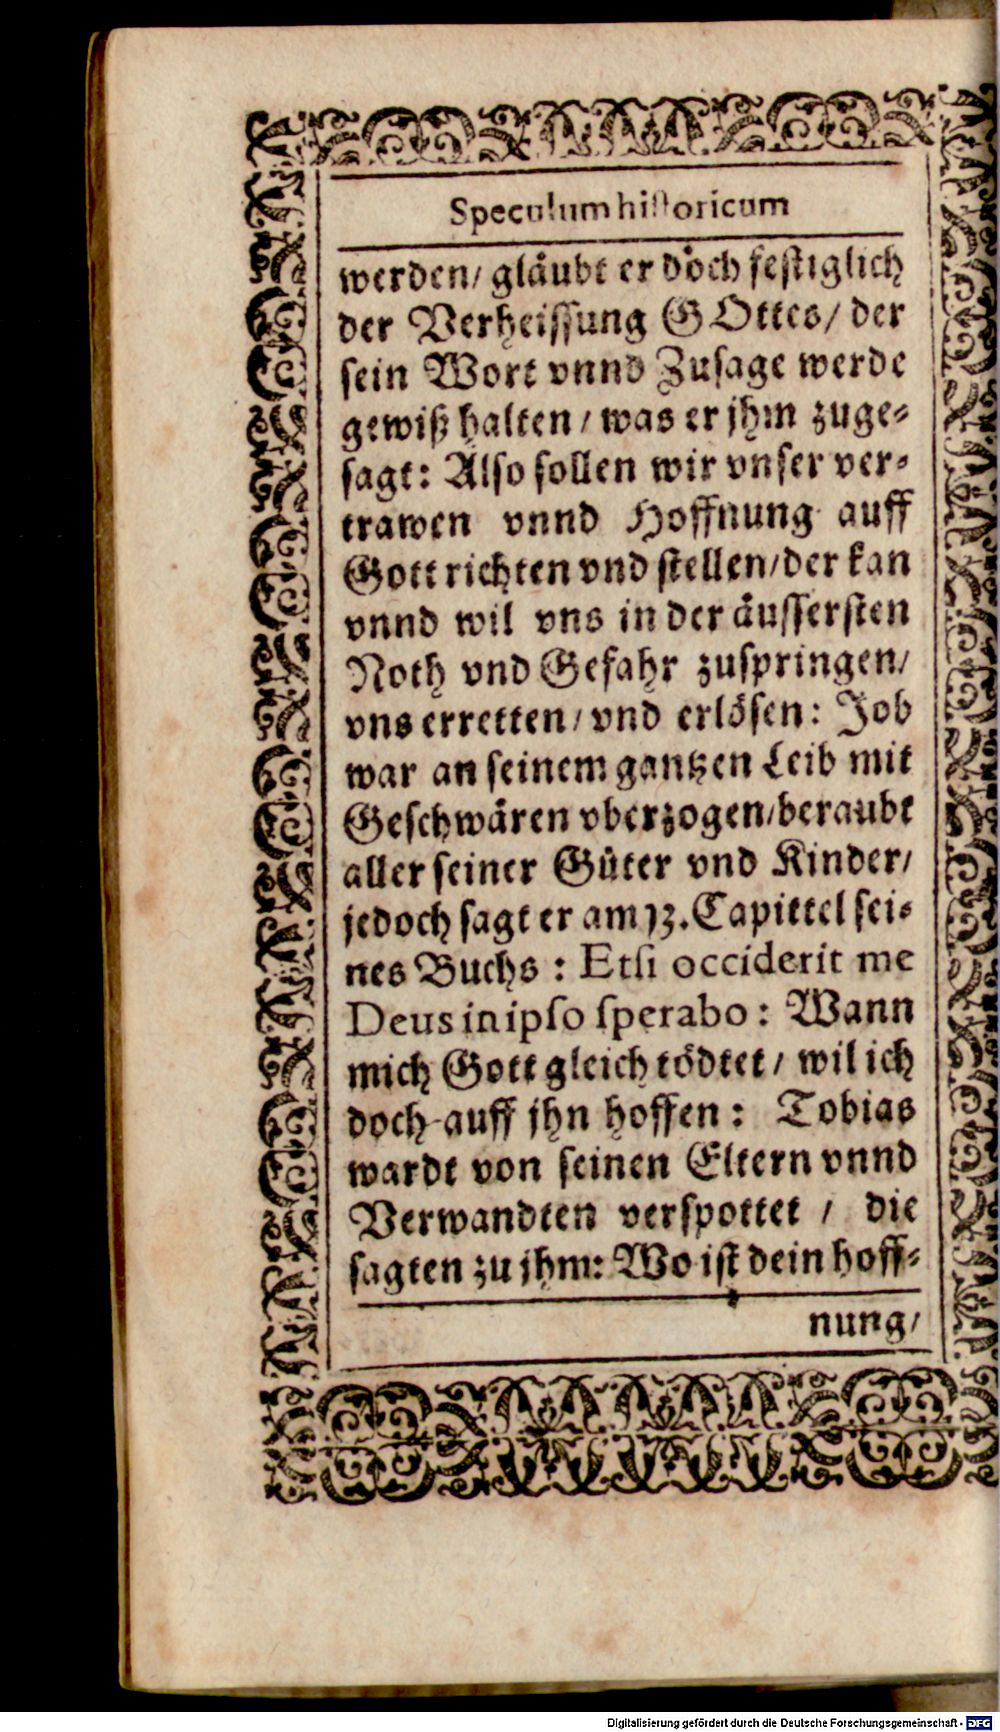 Speculum historicum
werden/ gläubt er doch festiglich
der Verheissung GOttes/ der
sein Wort vnnd Zusage werde
gewiß halten/ was er jhm zuge-
sagt: Also sollen wir vnser ver-
trawen vnnd Hoffnung auff
Gott richten vnd stellen/ der kan
vnnd wil vns in der äussersten
Noth vnd Gefahr zuspringen/
vns erretten/ vnd erlösen: Job
war an seinem gantzen Leib mit
Geschwären vberzogen/ beraubt
aller seiner Güter vnd Kinder/
jedoch sagt er am 13. Capittel sei-
nes Buchs: Etſi occiderit me
Deus in ipſo ſperabo: Wann
mich Gott gleich tödtet/ wil ich
doch auff jhn hoffen: Tobias
wardt von seinen Eltern vnnd
Verwandten verspottet/ die
sagten zu jhm: Wo ist dein hoff-
nung/
Digitalisierung gefördert durch die Deutsche Forschungsgemeinschaft - DFG